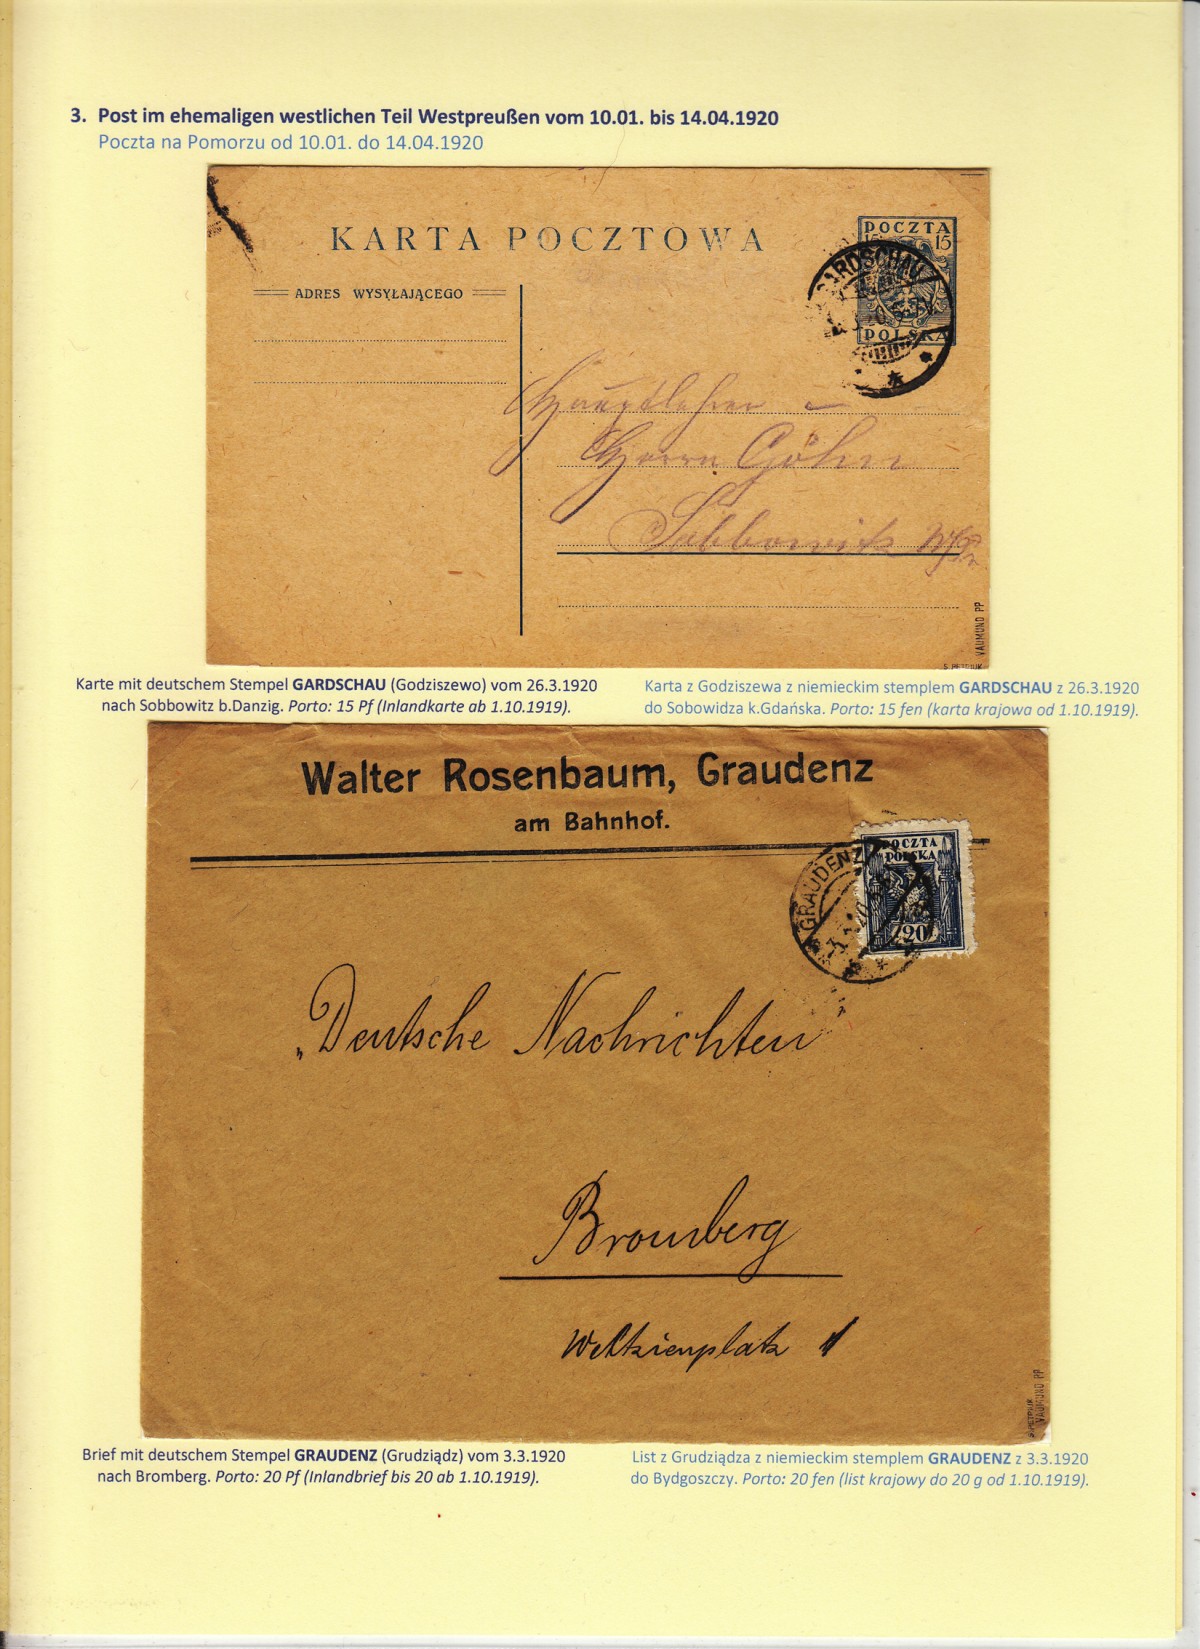 3. Post im ehemaligen westlichen Teil Westpreußen vom 10.01. bis 14.04.1920
Poczta na Pomorzu od 10.01. do 14.04.1920
KARTA POCZTOWA
POCZTA
15 15
POLSKA
GARDSCHAU
ADRES WYSYŁAJĄCEGO
Hauptlehrer
Herrn Göhn
Sobbowitz Wpr
VAUMUND PP
S. PETRIUK
Karte mit deutschem Stempel GARDSCHAU (Godziszewo) vom 26.3.1920
nach Sobbowitz b.Danzig. Porto: 15 Pf (Inlandkarte ab 1.10.1919).
Karta z Godziszewa z niemieckim stemplem GARDSCHAU z 26.3.1920
do Sobowidza k.Gdańska. Porto: 15 fen (karta krajowa od 1.10.1919).
Walter Rosenbaum, Graudenz
am Bahnhof.
POCZTA
POLSKA
20
GRAUDENZ
„Deutsche Nachrichten"
Bromberg
Weltzienplatz 1
S. PETRIUK
VAUMUND PP
Brief mit deutschem Stempel GRAUDENZ (Grudziądz) vom 3.3.1920
nach Bromberg. Porto: 20 Pf (Inlandbrief bis 20 ab 1.10.1919).
List z Grudziądza z niemieckim stemplem GRAUDENZ z 3.3.1920
do Bydgoszczy. Porto: 20 fen (list krajowy do 20 g od 1.10.1919).